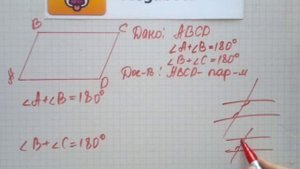 B
C
A
D
Дано: ABCD
∠A+∠B=180°
∠B+∠C=180°
Док-в: ABCD- пар-м
∠A+∠B=180°
∠B+∠C=180°